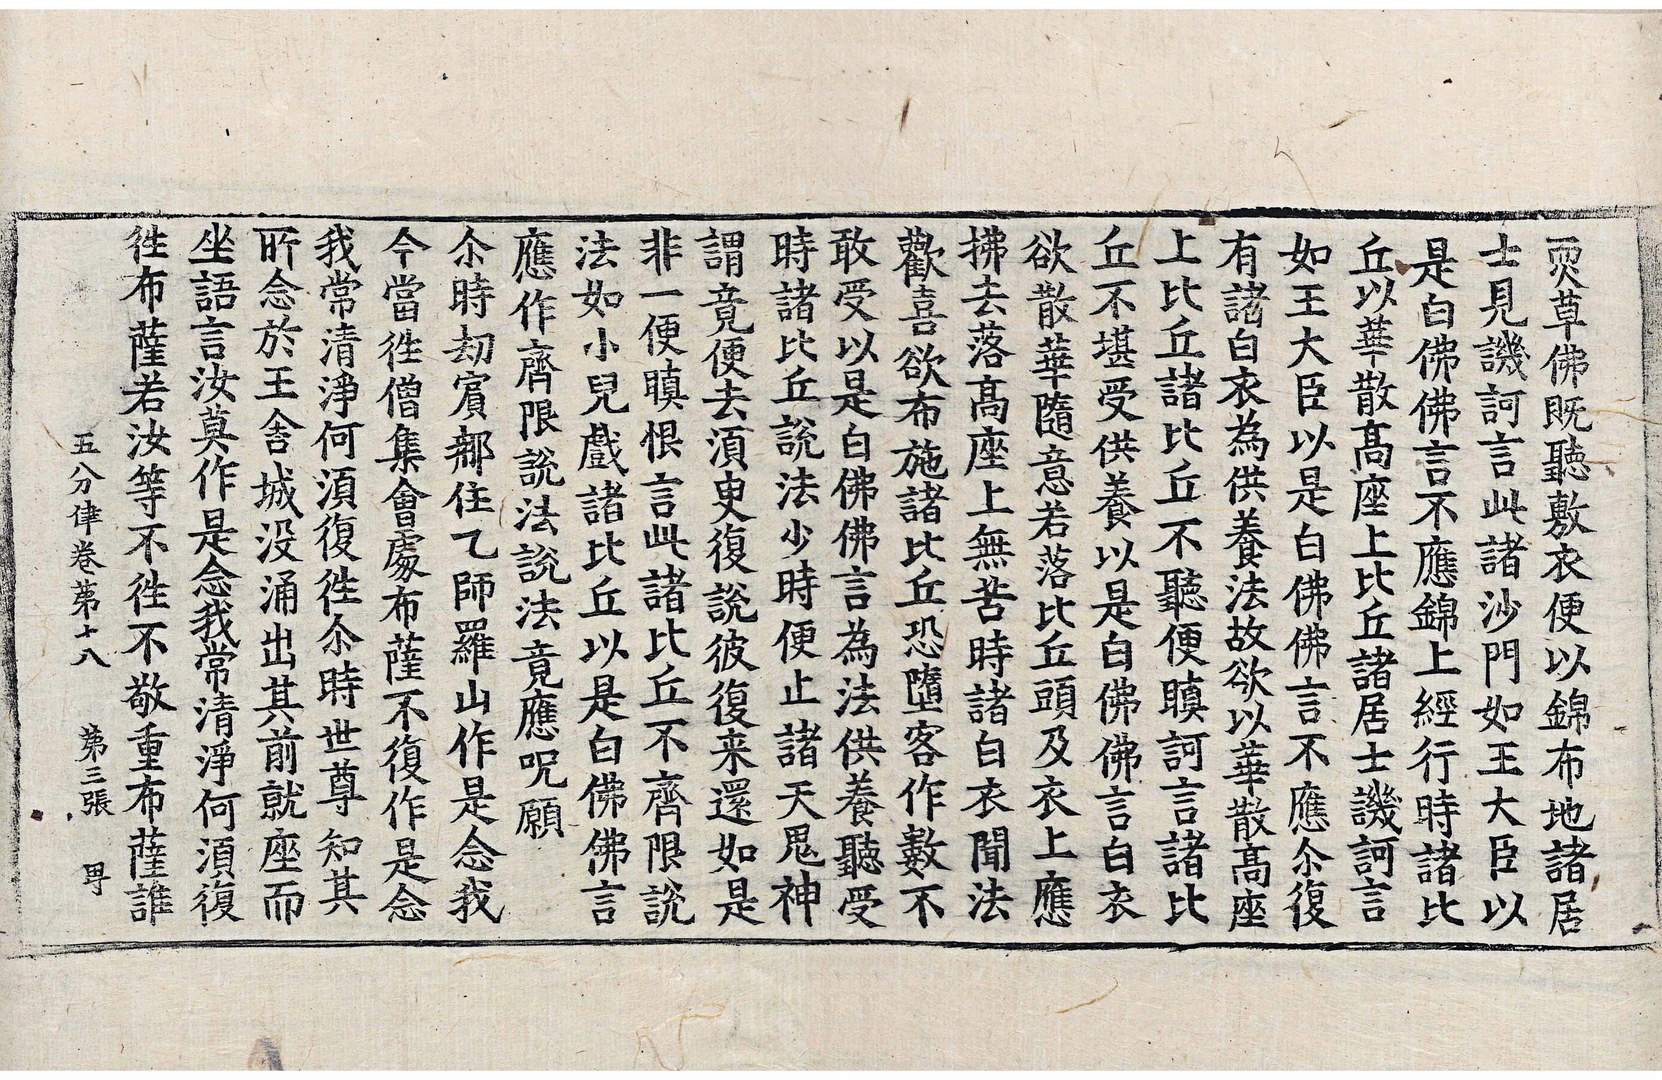 耎草佛既聽敷衣便以錦布地諸居
士見譏訶言此諸沙門如王大臣以
是白佛佛言不應錦上經行時諸比
丘以華散髙座上比丘諸居士譏訶言
如王大臣以是白佛佛言不應尒復
有諸白衣為供養法故欲以華散髙座
上比丘諸比丘不聽便瞋訶言諸比
丘不堪受供養以是白佛佛言白衣
欲散華隨意若落比丘頭及衣上應
拂去落髙座上無苦時諸白衣聞法
歡喜欲布施諸比丘恐墮客作數不
敢受以是白佛佛言為法供養聽受
時諸比丘說法少時便止諸天鬼神
謂竟便去須臾復說彼復来還如是
非一便瞋恨言此諸比丘不齊限說
法如小兒戲諸比丘以是白佛佛言
應作齊限說法說法竟應呪願
尒時劫賓𨚗住乙師羅山作是念我
今當徃僧集會處布薩不復作是念
我常清淨何須復徃尒時世尊知其
所念於王舍城没涌出其前就座而
坐語言汝莫作是念我常清淨何須復
徃布薩若汝等不徃不敬重布薩誰
五分律卷第十八　第三張